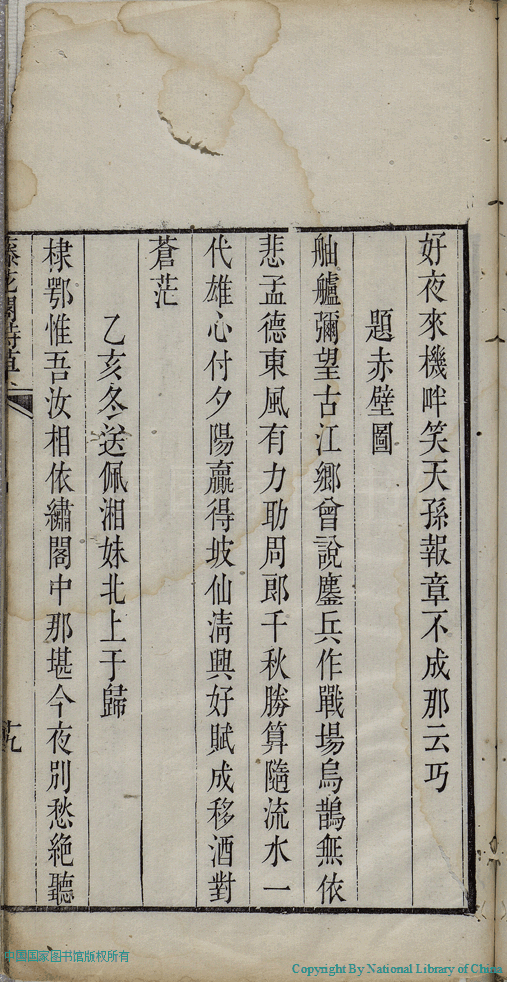 好夜來機畔笑天孫報章不成那云巧
題赤壁圖
舳艫彌望古江鄉曾說鏖兵作戰場烏鵲無依
悲孟德東風有力助周郎千秋勝算隨流水一
代雄心付夕陽贏得坡仙淸興好賦成移酒對
蒼茫
乙亥冬送佩湘妹北上于歸
棣鄂惟吾汝相依繡閣中那堪今夜別愁絶聽
藤花閣詩草
十九
中国国家图书馆版权所有
Copyright By National Library of China